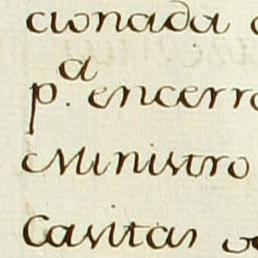 cionada
p.ª encerr
Ministro
Casitas